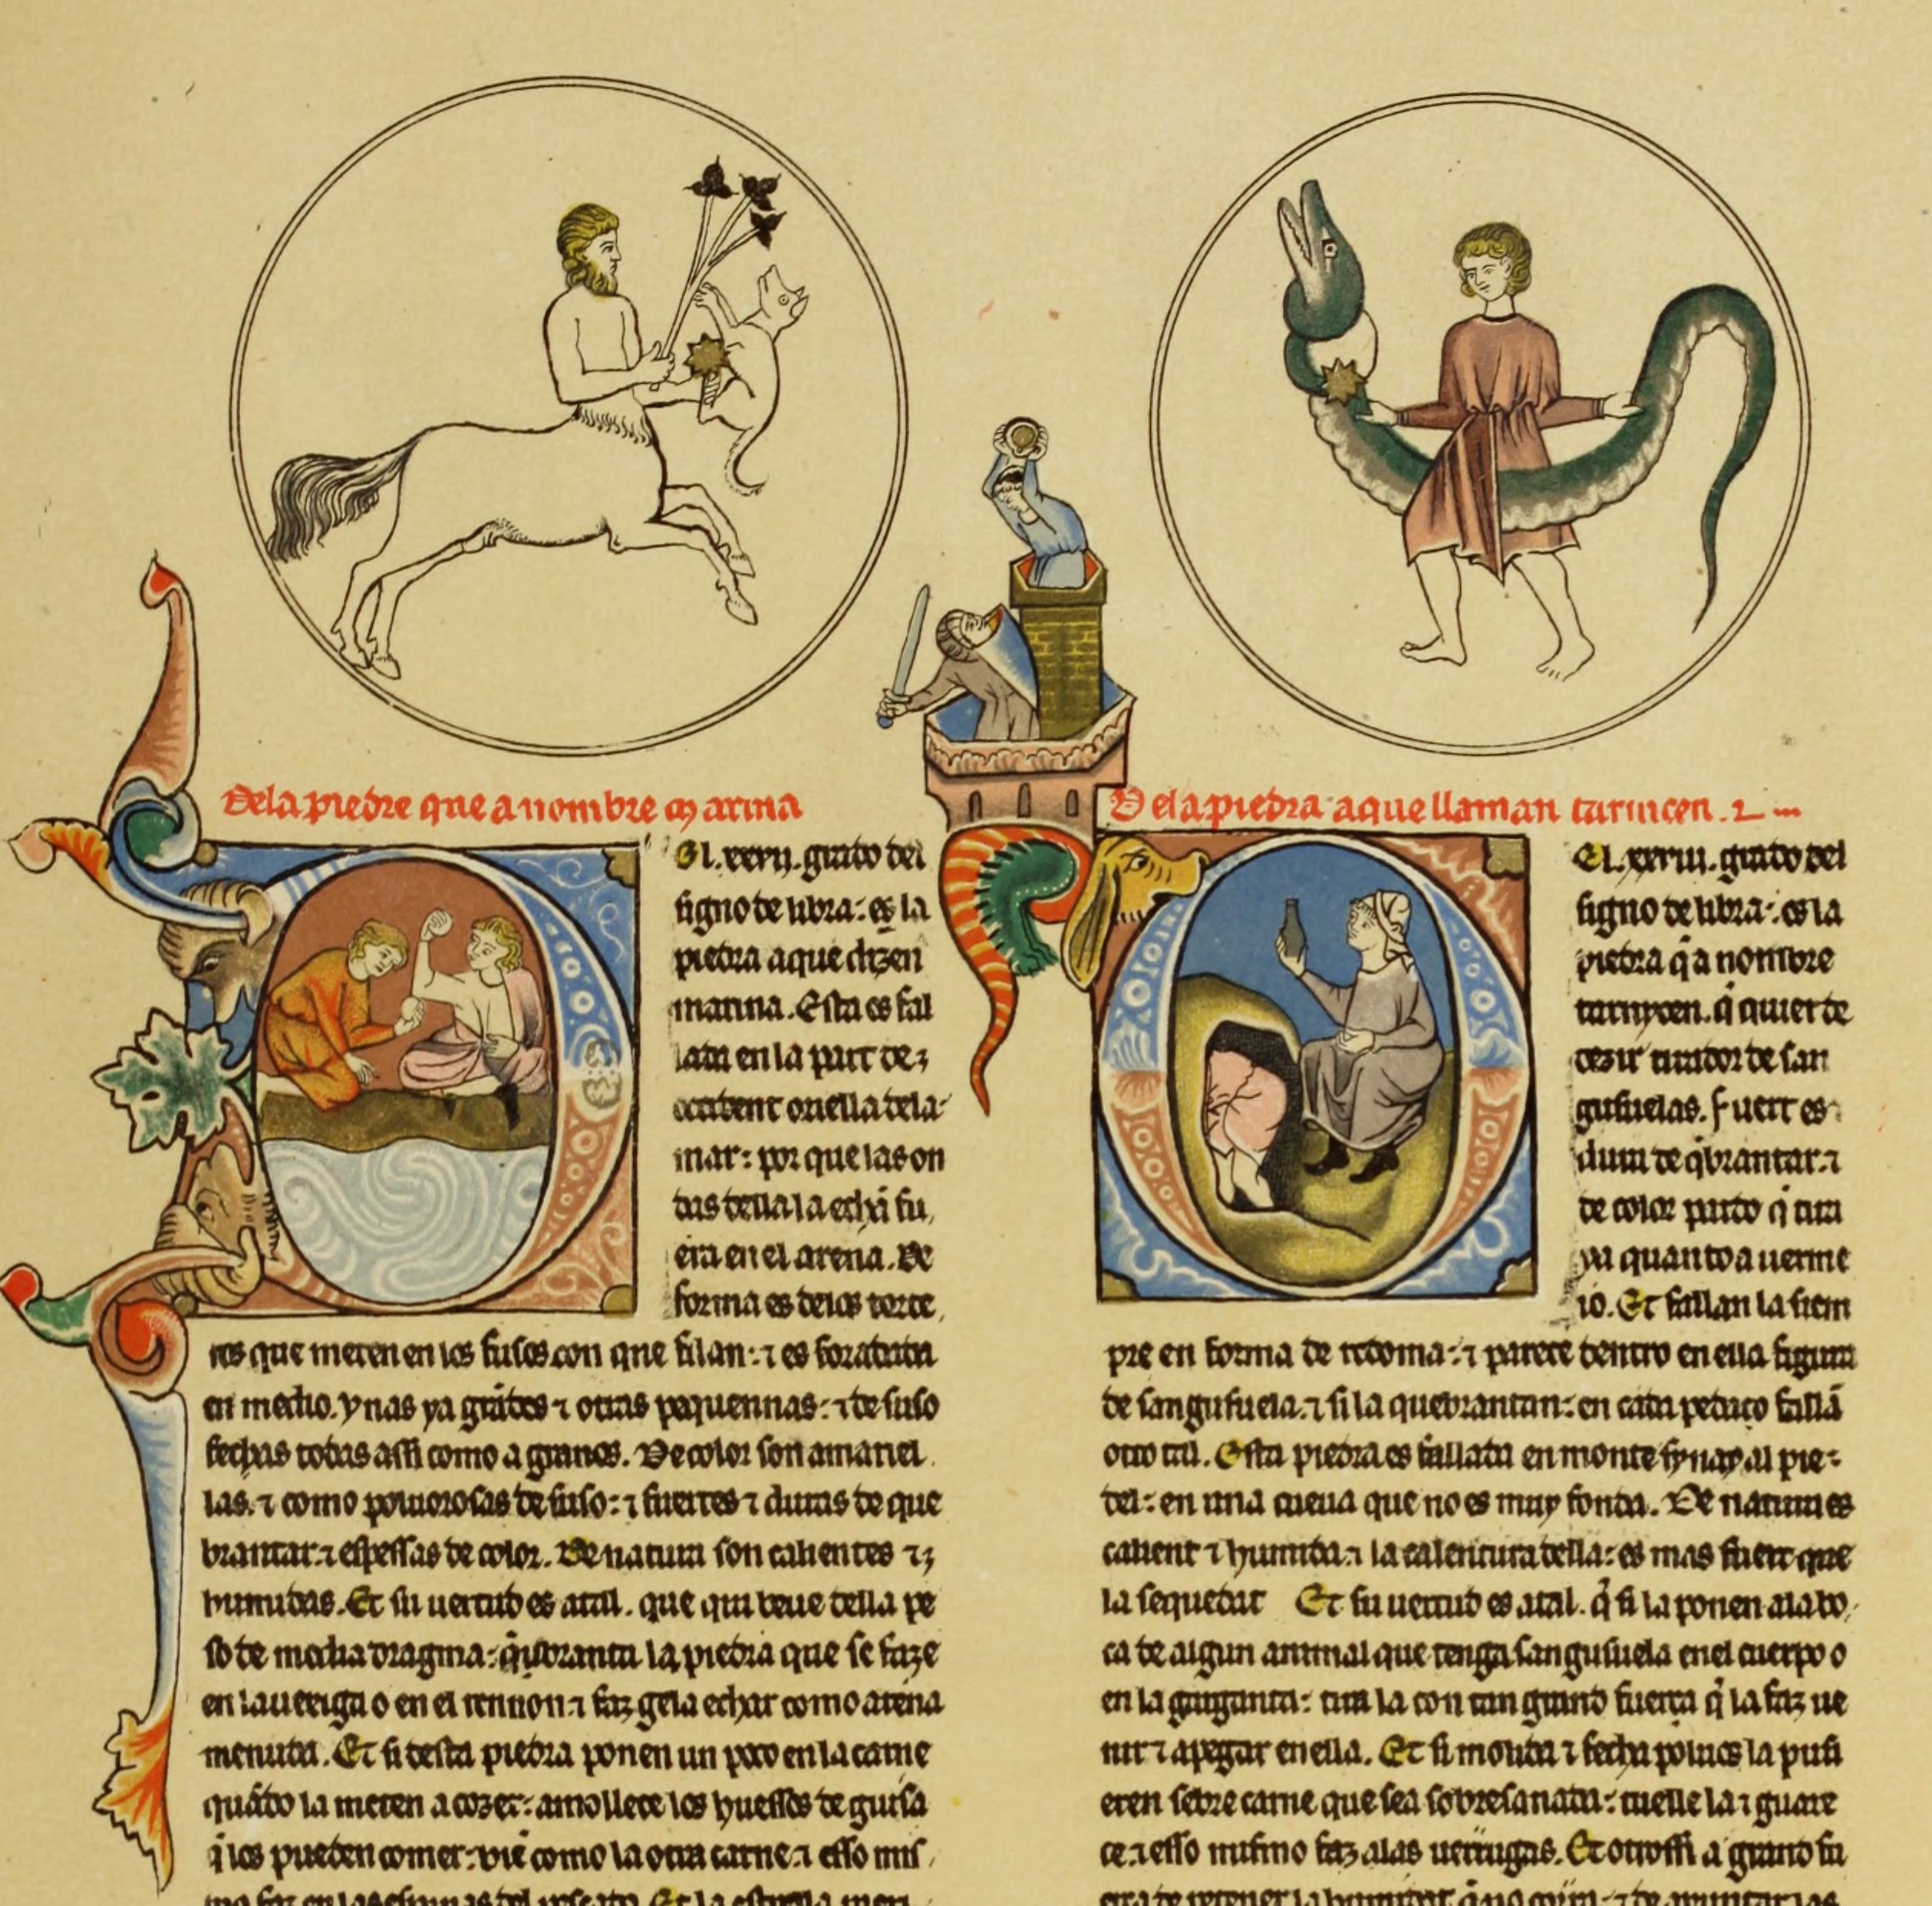 Dela piedre que a nombre marina
El. xxvij. grado del
signo de libra: es la
piedra aque dizen
marina. Esta es fal
lada en la part de
occident oriella dela
mar: por que las on
das della la echã fu
era en el arena. De
forma es delos torte
ros que meten en los fusos con que filan: ⁊ es foradada
en medio. ynas ya grãdes ⁊ otras pequennas: ⁊ de suso
fechas todas assi como a granos. De color son amariel
las. ⁊ como poluorosas de suso: ⁊ fuertes ⁊ duras de que
brantar. ⁊ espessas de color. De natura son calientes ⁊
humidas. Et su uertud es atal. que qui beue della pe
so de media dragma: q̃branta la piedra que se faze
en la uexiga o en el rennon. ⁊ faz gela echar como arena
menuda. Et si desta piedra ponen un poco en la carne
quãdo la meten a cozer: amollece los huessos de guisa
q̃ los pueden comer: biẽ como la otra carne. ⁊ esso mis
mo faz en las espinas del pescado. Et la estrella
Dela piedra aque llaman turnicen.
El. xxviij. grado del
signo de libra: es la
piedra q̃ a nombre
turnycen. q̃ quier de
dezir tirador de san
guisuelas. fuert es
dura de q̃brantar. ⁊
de color pardo q̃ tira
ya quanto a uerme
io. Et fallan la siem
pre en forma de redoma: ⁊ parece dentro en ella figura
de sanguisuela. ⁊ si la quebrantan: en cada pedaço fallã
otro tal. Esta piedra es fallada en monte synay al pie
del: en una cueua que no es muy fonda. De natura es
calient ⁊ humida. ⁊ la calentura della: es mas fuert que
la sequedat Et su uertud es atal. q̃ si la ponen ala bo
ca de algun animal que tenga sanguisuela enel cuerpo o
en la garganta: tira la con tan grand fuerça q̃ la faz ue
nir ⁊ apegar en ella. Et si molida ⁊ fecha poluos la pusi
eren sobre carne que sea sobresanada: tuelle la ⁊ guare
ce. ⁊ esso mismo faz alas uerrugas. Et otrossi a grand fu
erça de retener la humidat